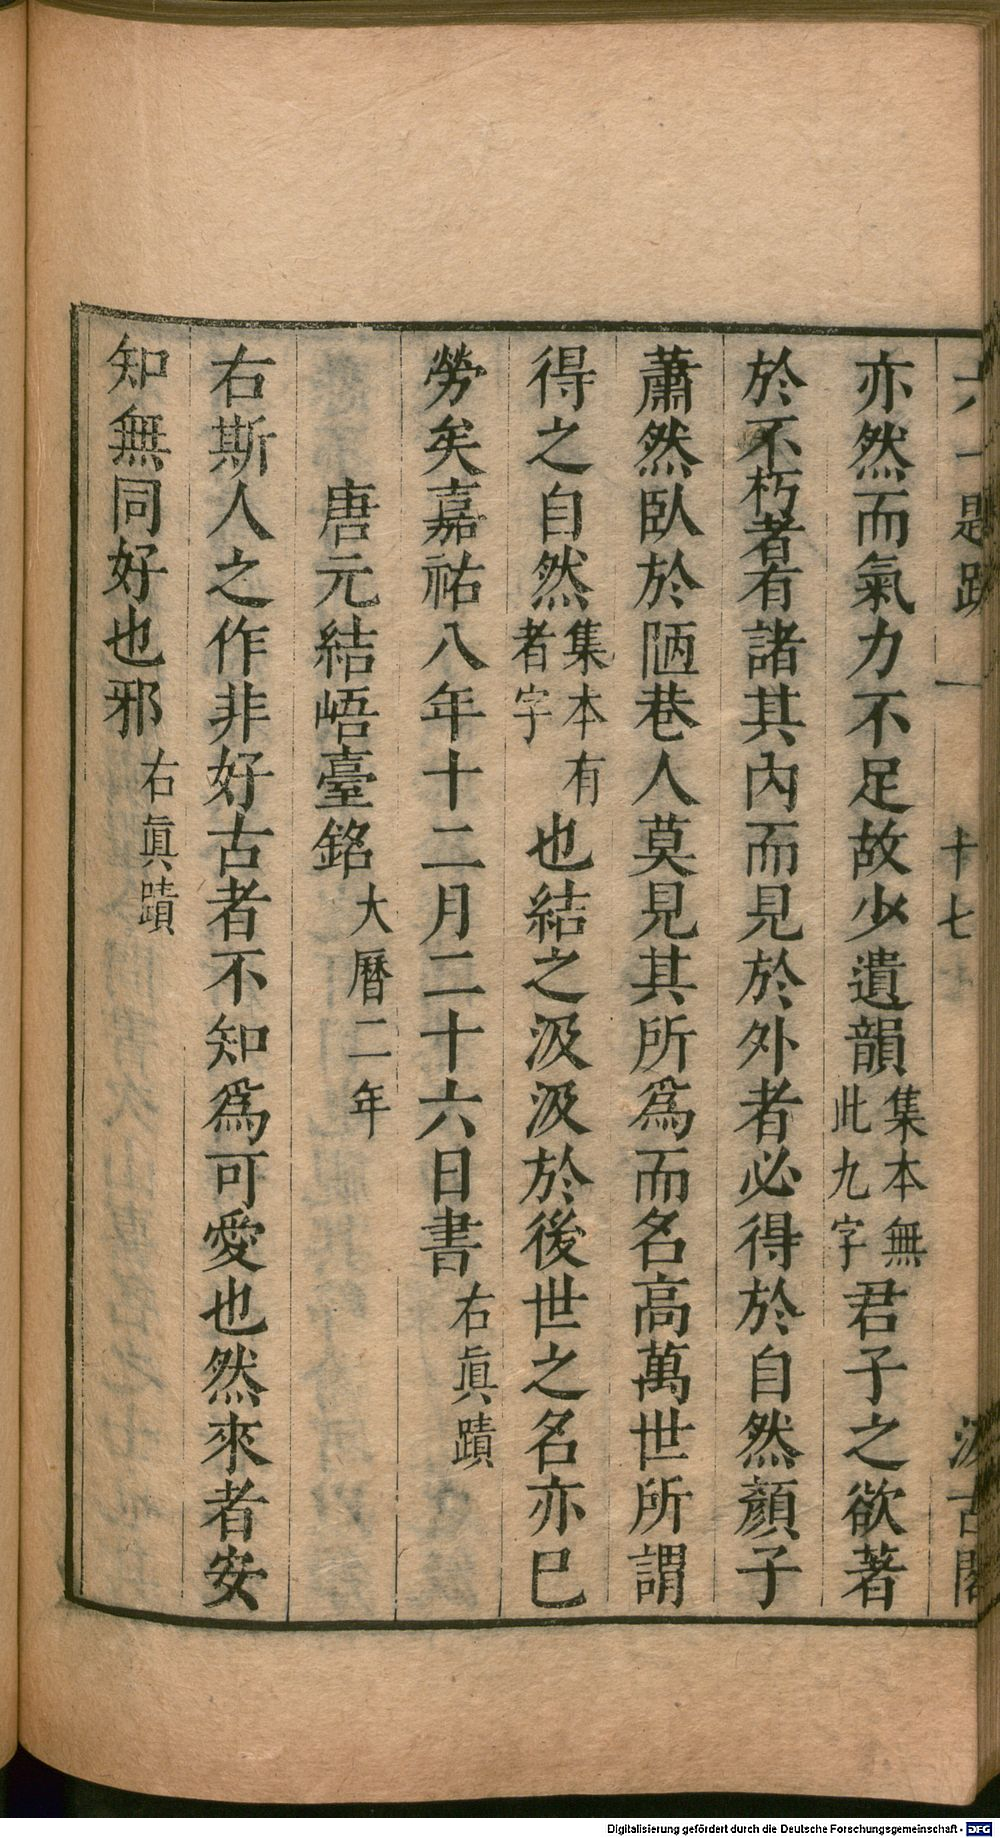 六一題跋 一 十七 汲古閣
亦然而氣力不足故少遺韻集本無此九字君子之欲著
於不朽者有諸其內而見於外者必得於自然顏子
蕭然臥於陋巷人莫見其所爲而名高萬世所謂
得之自然集本有者字也結之汲汲於後世之名亦已
勞矣嘉祐八年十二月二十六日書右眞蹟
唐元結峿臺銘大曆二年
右斯人之作非好古者不知爲可愛也然來者安
知無同好也邪右眞蹟
Digitalisierung gefördert durch die Deutsche Forschungsgemeinschaft - DFG